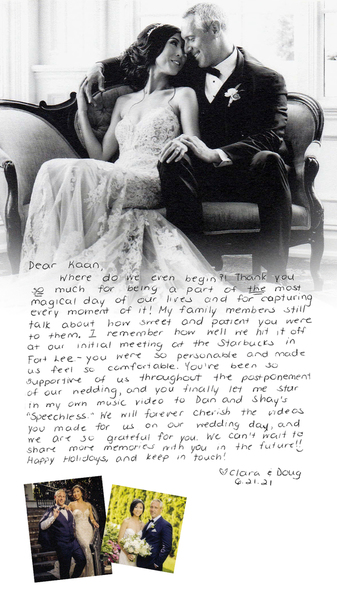 Dear Kaan,
Where do we even begin?! Thank you
so much for being a part of the most
magical day of our lives and for capturing
every moment of it! My family members still
talk about how sweet and patient you were
to them. I remember how well we hit it off
at our initial meeting at the Starbucks in
Fort Lee - you were so personable and made
us feel so comfortable. You've been so
supportive of us throughout the postponement
of our wedding, and you finally let me star
in my own music video to Dan and Shay's
"Speechless." We will forever cherish the videos
you made for us on our wedding day, and
we are so grateful for you. We can't wait to
share more memories with you in the future!!
Happy Holidays, and keep in touch!
♡Clara & Doug
6.21.21